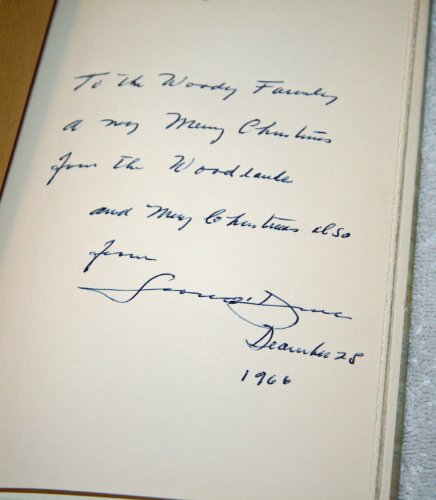 To the Woody Family
A very Merry Christmas
from the Woodlands
and Merry Christmas also
from
December 25
1966